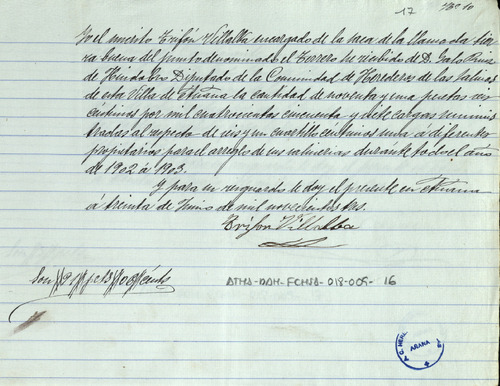 17
Yo el inscrito Trifón Villalba encargado de la vena de la llamada tier-
ra buena del punto denominado el Torrero he recibido de D. Galo Ruiz
de Heredia Diputado de la Comunidad de Herederos de las Salinas
de esta Villa de Añana la cantidad de noventa y una pesetas seis
céntimos por mil cuatrocientas cincuenta y siete cargas suminis-
tradas al respecto de seis y un cuartillo céntimos una a diferentes
propietarios para el arreglo de sus salineras durante todo el año
de 1902 á 1903.
Y para su resguardo le doy el presente en Añana
á treinta de Junio de mil novecientos tres.
Trifon Villalba
Son 91 pts
ATHA-DAH-FCHSA-018-009-16
ARANA